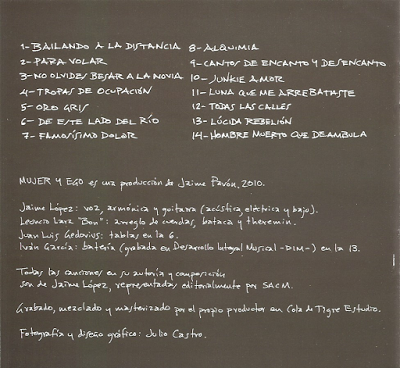 1- BAILANDO A LA DISTANCIA
2- PARA VOLAR
3- NO OLVIDES BESAR A LA NOVIA
4- TROPAS DE OCUPACIÓN
5- ORO GRIS
6- DE ESTE LADO DEL RÍO
7- FAMOSÍSIMO DOLOR
8- ALQUIMIA
9- CANTOS DE ENCANTO Y DESENCANTO
10- JUNKIE AMOR
11- LUNA QUE ME ARREBATASTE
12- TODAS LAS CALLES
13- LÚCIDA REBELIÓN
14- HOMBRE MUERTO QUE DEAMBULA
MUJER Y EGO es una producción de Jaime Pavón, 2010.
Jaime López: voz, armónica y guitarra (acústica eléctrica y bajo).
Leoncio Lara "Bon": arreglo de cuerdas, bataca y theremin.
Juan Luis Gedovius: tablas en la 6.
Iván García: batería (grabada en Desarrollo Integral Musical -DIM-) en la 13.
Todas las canciones en su autoría y composición
son de Jaime López, representadas editorialmente por SACM.
Grabado, mezclado y masterizado por el propio productor en Cola de Tigre Estudio.
Fotografía y diseño gráfico: Julio Castro.